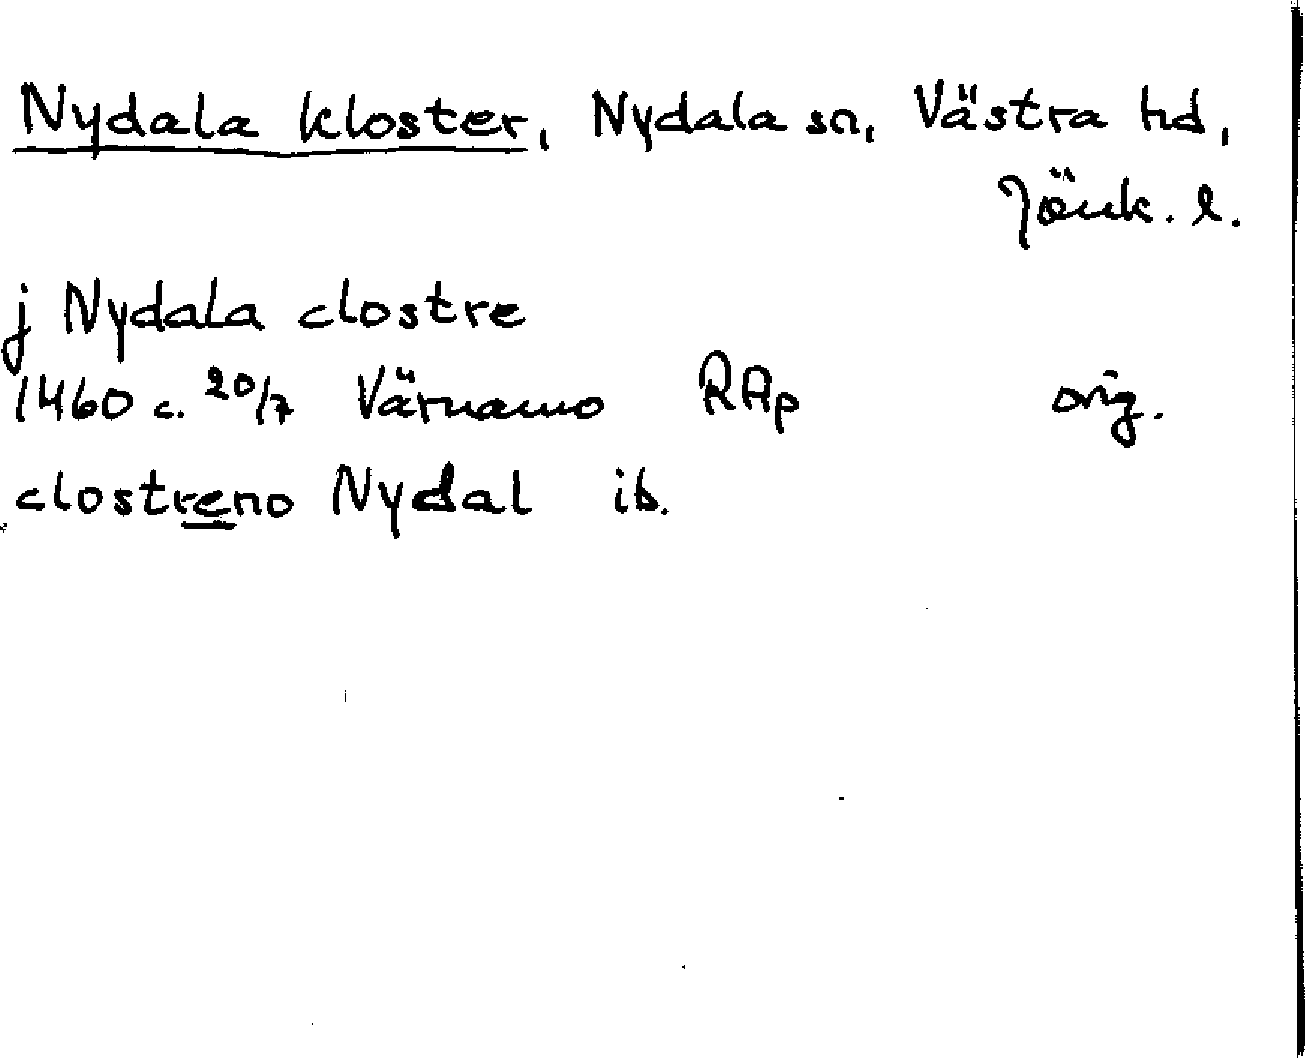 Nydala kloster, Nydala sn, Västra hd,
Jönk. l.
j Nydala clostre
1460 c. 20/7 Värnamo RAp orig.
clostreno Nydal ib.